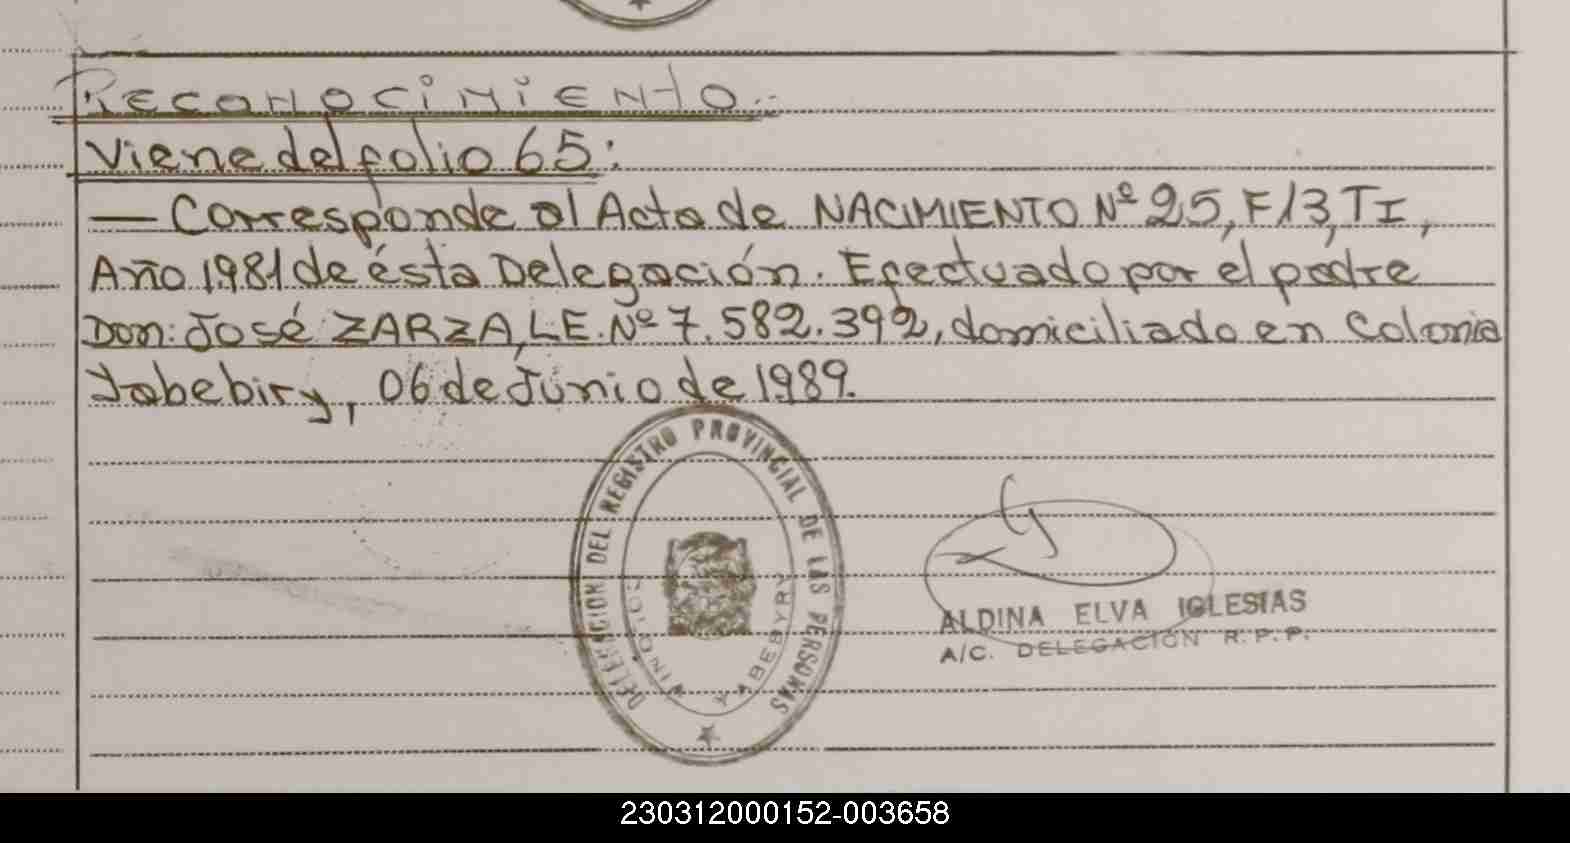 Reconocimiento.-
Viene del folio 65:
— Corresponde al Acta de NACIMIENTO Nº 25, F/13, TI,
Año 1981 de ésta Delegación. Efectuado por el padre
Don: José ZARZA, L.E. Nº 7.582.392, domiciliado en Colonia
Yabebiry, 06 de Junio de 1989.
DELEGACION DEL REGISTRO PROVINCIAL DE LAS PERSONAS
YABEBYRY
ALDINA ELVA IGLESIAS
A/C. DELEGACIÓN R.P.P.
230312000152-003658